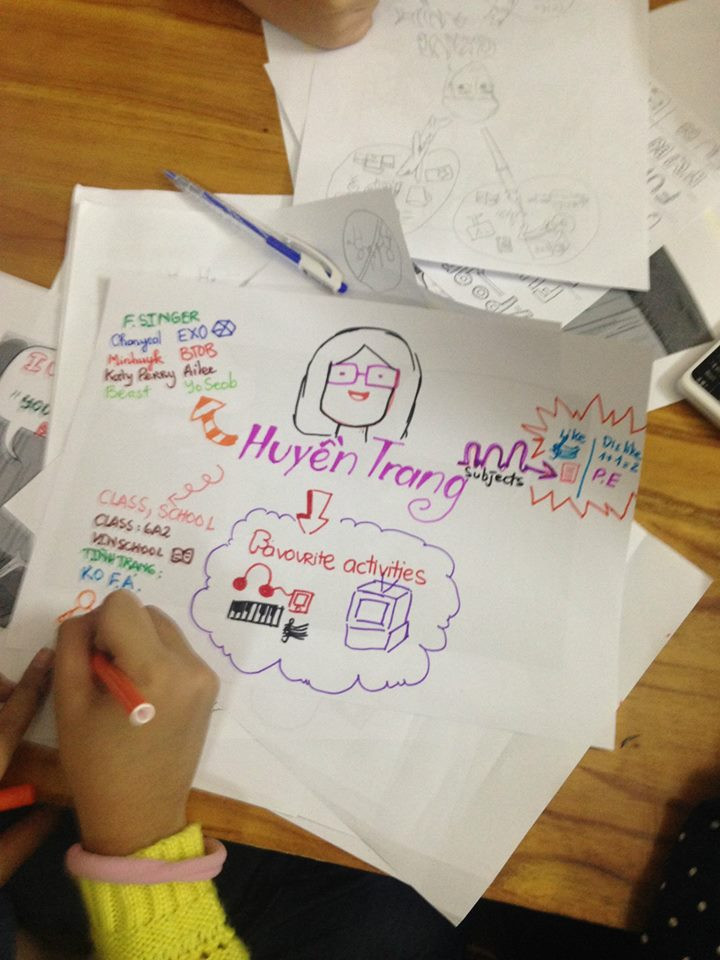 F. SINGER
Chanyeol EXO
Minhuyk BTOB
Katy Perry Ailee
Beast YoSeob
Huyền Trang
Subjects
Like
Dislike
1+1=2
P.E
CLASS, SCHOOL
CLASS: 6A2
VINSCHOOL
TÌNH TRẠNG:
K.O F.A.
Favourite activities